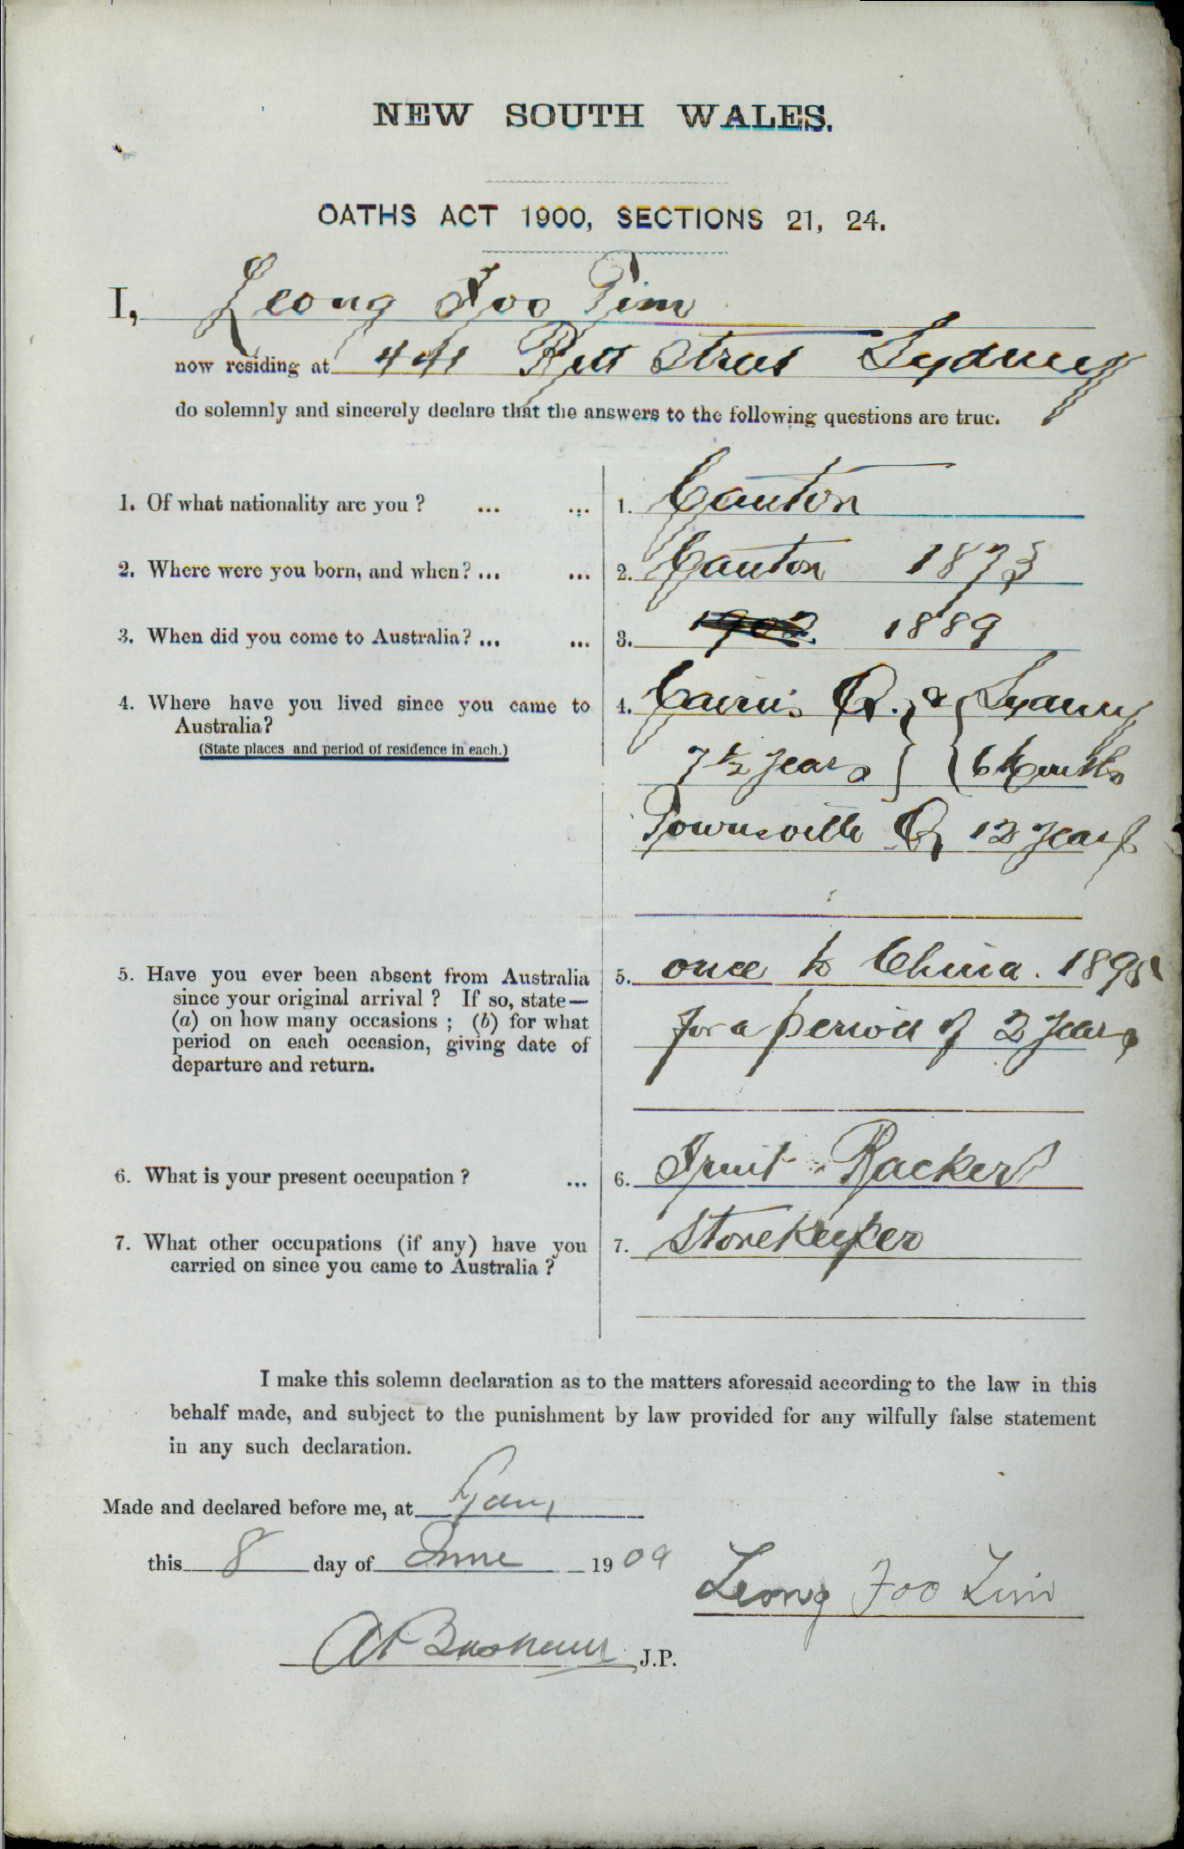 NEW SOUTH WALES.
OATHS ACT 1900, SECTIONS 21, 24.
I, Leong Foo Tim
now residing at 441 Pitt Street Sydney
do solemnly and sincerely declare that the answers to the following questions are true.
1. Of what nationality are you ? ... ... 1. Canton
2. Where were you born, and when? ... ... 2. Canton 1873
3. When did you come to Australia? ... ... 3. 1902 1889
4. Where have you lived since you came to 4. Cairns Q. & Sydney
Australia? 7 1/2 years 6 Months
(State places and period of residence in each.)
Townsville Q 12 years
5. Have you ever been absent from Australia 5. once to China. 1895
since your original arrival ? If so, state—
(a) on how many occasions ; (b) for what for a period of 2 years
period on each occasion, giving date of
departure and return.
6. What is your present occupation ? ... 6. Fruit Packer
7. What other occupations (if any) have you 7. Storekeeper
carried on since you came to Australia ?
I make this solemn declaration as to the matters aforesaid according to the law in this
behalf made, and subject to the punishment by law provided for any wilfully false statement
in any such declaration.
Made and declared before me, at
this 8 day of June 1909
Leong Foo Tim
J.P.